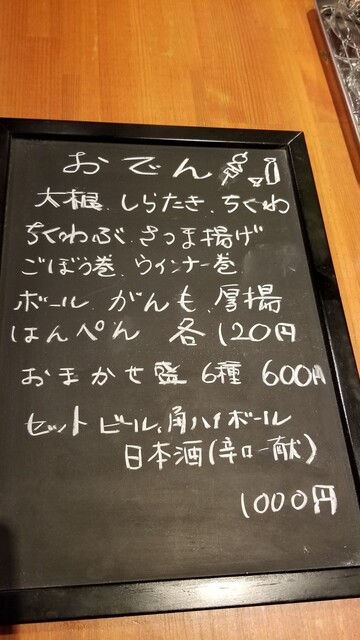 おでん
大根、しらたき、ちくわ
ちくわぶ、さつま揚げ
ごぼう巻、ウィンナー巻
ボール、がんも、厚揚
はんぺん 各120円
おまかせ盛 6種 600円
セット ビール、角ハイボール
日本酒(辛口一献)
1000円